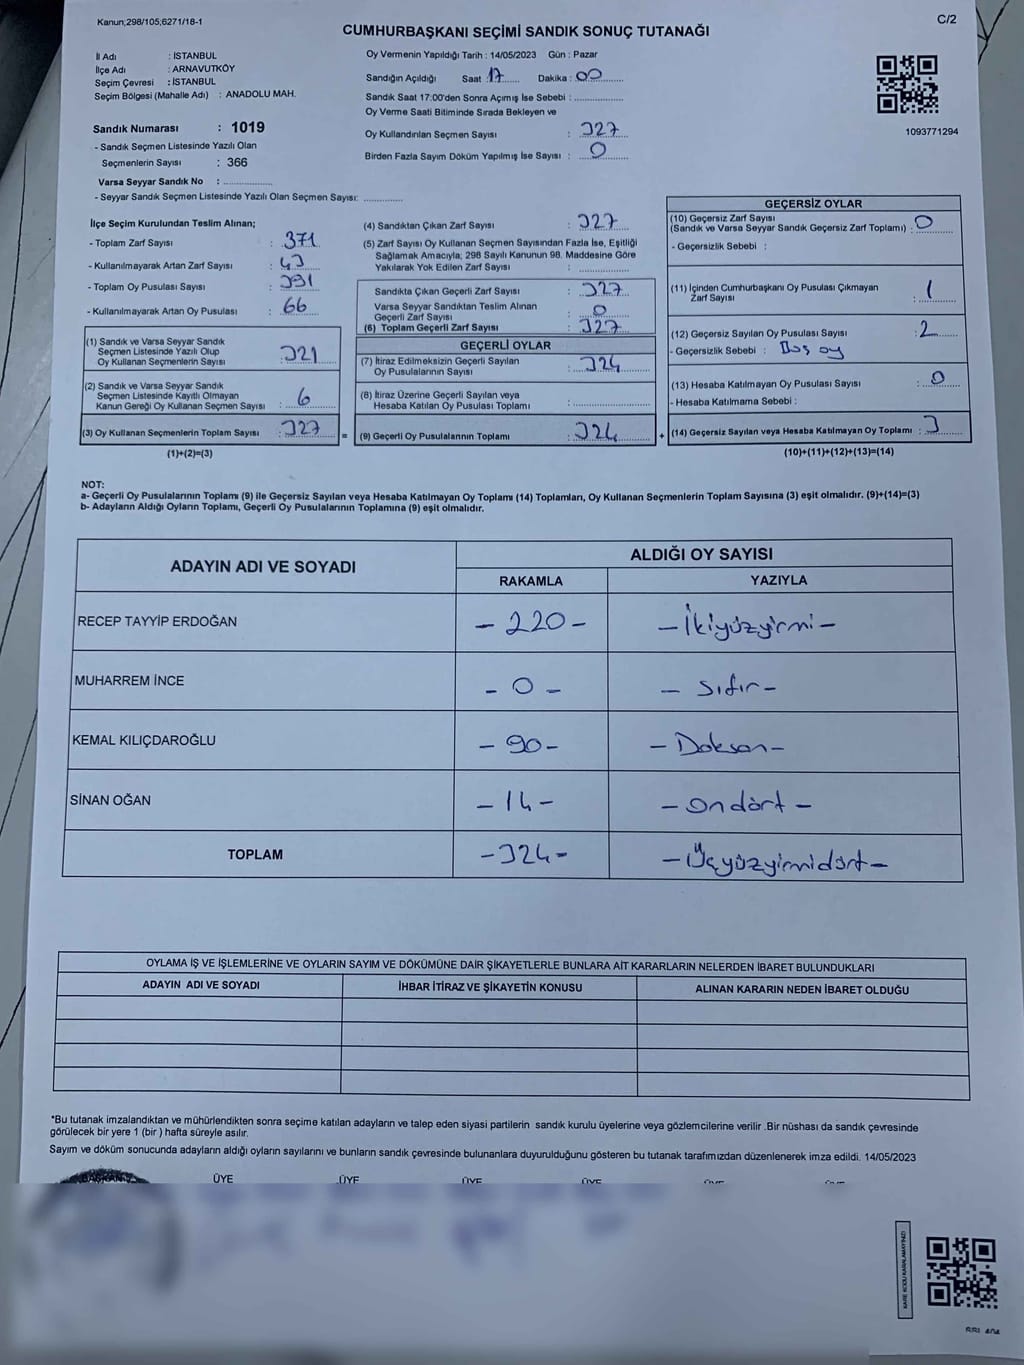 Kanun;298/105;6271/18-1
C/2
CUMHURBAŞKANI SEÇİMİ SANDIK SONUÇ TUTANAĞI
İl Adı : İSTANBUL
İlçe Adı : ARNAVUTKÖY
Seçim Çevresi : İSTANBUL
Seçim Bölgesi (Mahalle Adı) : ANADOLU MAH.
Sandık Numarası : 1019
- Sandık Seçmen Listesinde Yazılı Olan
Seçmenlerin Sayısı : 366
Varsa Seyyar Sandık No : ..............
- Seyyar Sandık Seçmen Listesinde Yazılı Olan Seçmen Sayısı: ............
Oy Vermenin Yapıldığı Tarih : 14/05/2023 Gün : Pazar
Sandığın Açıldığı Saat 17 Dakika : 00
Sandık Saat 17:00'den Sonra Açımış İse Sebebi : ..............
Oy Verme Saati Bitiminde Sırada Bekleyen ve
Oy Kullandırılan Seçmen Sayısı : 327
Birden Fazla Sayım Döküm Yapılmış İse Sayısı : 0
1093771294
İlçe Seçim Kurulundan Teslim Alınan;
- Toplam Zarf Sayısı : 371
- Kullanılmayarak Artan Zarf Sayısı : 43
- Toplam Oy Pusulası Sayısı : 391
- Kullanılmayarak Artan Oy Pusulası : 66
(1) Sandık ve Varsa Seyyar Sandık
Seçmen Listesinde Yazılı Olup
Oy Kullanan Seçmenlerin Sayısı : 321
(2) Sandık ve Varsa Seyyar Sandık
Seçmen Listesinde Kayıtlı Olmayan
Kanun Gereği Oy Kullanan Seçmen Sayısı : 6
(3) Oy Kullanan Seçmenlerin Toplam Sayısı : 327 =
(1)+(2)=(3)
(4) Sandıktan Çıkan Zarf Sayısı : 327
(5) Zarf Sayısı Oy Kullanan Seçmen Sayısından Fazla İse, Eşitliği
Sağlamak Amacıyla; 298 Sayılı Kanunun 98. Maddesine Göre
Yakılarak Yok Edilen Zarf Sayısı : ..............
Sandıkta Çıkan Geçerli Zarf Sayısı : 327
Varsa Seyyar Sandıktan Teslim Alınan
Geçerli Zarf Sayısı : 0
(6) Toplam Geçerli Zarf Sayısı : 327
GEÇERLİ OYLAR
(7) İtiraz Edilmeksizin Geçerli Sayılan
Oy Pusulalarının Sayısı : 324
(8) İtiraz Üzerine Geçerli Sayılan veya
Hesaba Katılan Oy Pusulası Toplamı : ..............
(9) Geçerli Oy Pusulalarının Toplamı : 324 +
GEÇERSİZ OYLAR
(10) Geçersiz Zarf Sayısı
(Sandık ve Varsa Seyyar Sandık Geçersiz Zarf Toplamı) : 0
- Geçersizlik Sebebi :
(11) İçinden Cumhurbaşkanı Oy Pusulası Çıkmayan
Zarf Sayısı : 1
(12) Geçersiz Sayılan Oy Pusulası Sayısı : 2
- Geçersizlik Sebebi : Boş oy
(13) Hesaba Katılmayan Oy Pusulası Sayısı : 0
- Hesaba Katılmama Sebebi :
(14) Geçersiz Sayılan veya Hesaba Katılmayan Oy Toplamı : 3
(10)+(11)+(12)+(13)=(14)
NOT:
a- Geçerli Oy Pusulalarının Toplamı (9) ile Geçersiz Sayılan veya Hesaba Katılmayan Oy Toplamı (14) Toplamları, Oy Kullanan Seçmenlerin Toplam Sayısına (3) eşit olmalıdır. (9)+(14)=(3)
b- Adayların Aldığı Oyların Toplamı, Geçerli Oy Pusulalarının Toplamına (9) eşit olmalıdır.
ADAYIN ADI VE SOYADI
ALDIĞI OY SAYISI
RAKAMLA YAZIYLA
RECEP TAYYİP ERDOĞAN - 220 - - İkiyüzyirmi -
MUHARREM İNCE - 0 - - Sıfır -
KEMAL KILIÇDAROĞLU - 90 - - Doksan -
SİNAN OĞAN - 14 - - Ondört -
TOPLAM - 324 - - Üçyüzyirmidört -
OYLAMA İŞ VE İŞLEMLERİNE VE OYLARIN SAYIM VE DÖKÜMÜNE DAİR ŞİKAYETLERLE BUNLARA AİT KARARLARIN NELERDEN İBARET BULUNDUKLARI
ADAYIN ADI VE SOYADI İHBAR İTİRAZ VE ŞİKAYETİN KONUSU ALINAN KARARIN NEDEN İBARET OLDUĞU
*Bu tutanak imzalandıktan ve mühürlendikten sonra seçime katılan adayların ve talep eden siyasi partilerin sandık kurulu üyelerine veya gözlemcilerine verilir .Bir nüshası da sandık çevresinde
görülecek bir yere 1 (bir ) hafta süreyle asılır.
Sayım ve döküm sonucunda adayların aldığı oyların sayılarını ve bunların sandık çevresinde bulunanlara duyurulduğunu gösteren bu tutanak tarafımızdan düzenlenerek imza edildi. 14/05/2023
BAŞKAN ÜYE ÜYE ÜYE ÜYE
KARE KODU KARALAMAYINIZ!